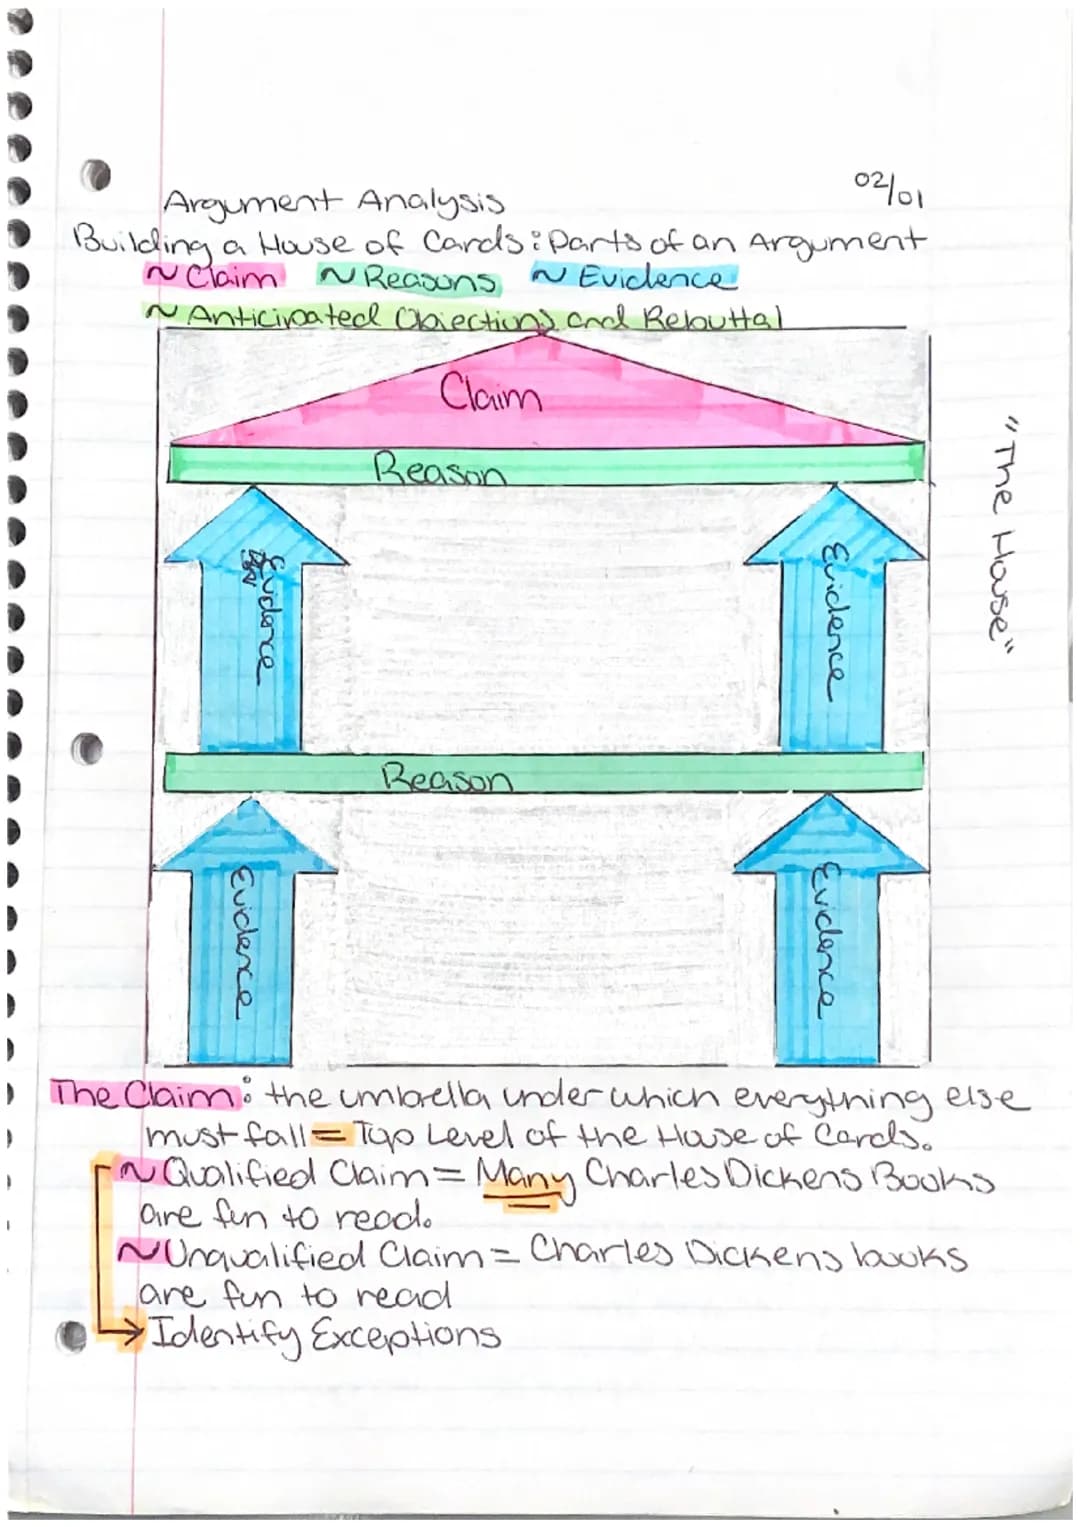 02/01
Argument Analysis
Building a House of Cards: Parts of an Argument
~ Claim ~ Reasons ~ Evidence
~ Anticipated Objections and Rebuttal
Claim
Reason
Evidence Evidence
"The House"
Reason
Evidence Evidence
The Claim: the umbrella under which everything else
must fall = Top Level of the House of Cards.
~ Qualified Claim = Many Charles Dickens Books
are fun to read.
~ Unqualified Claim = Charles Dickens books
are fun to read
→ Identify Exceptions